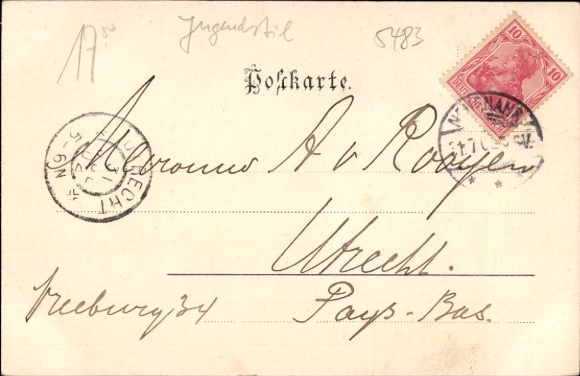 17.00 Jugendstil 5483
Postkarte.
10 10
UTRECHT
5-6N
A v Rooyen
Utrecht.
Vreeburg 34 Pays-Bas.